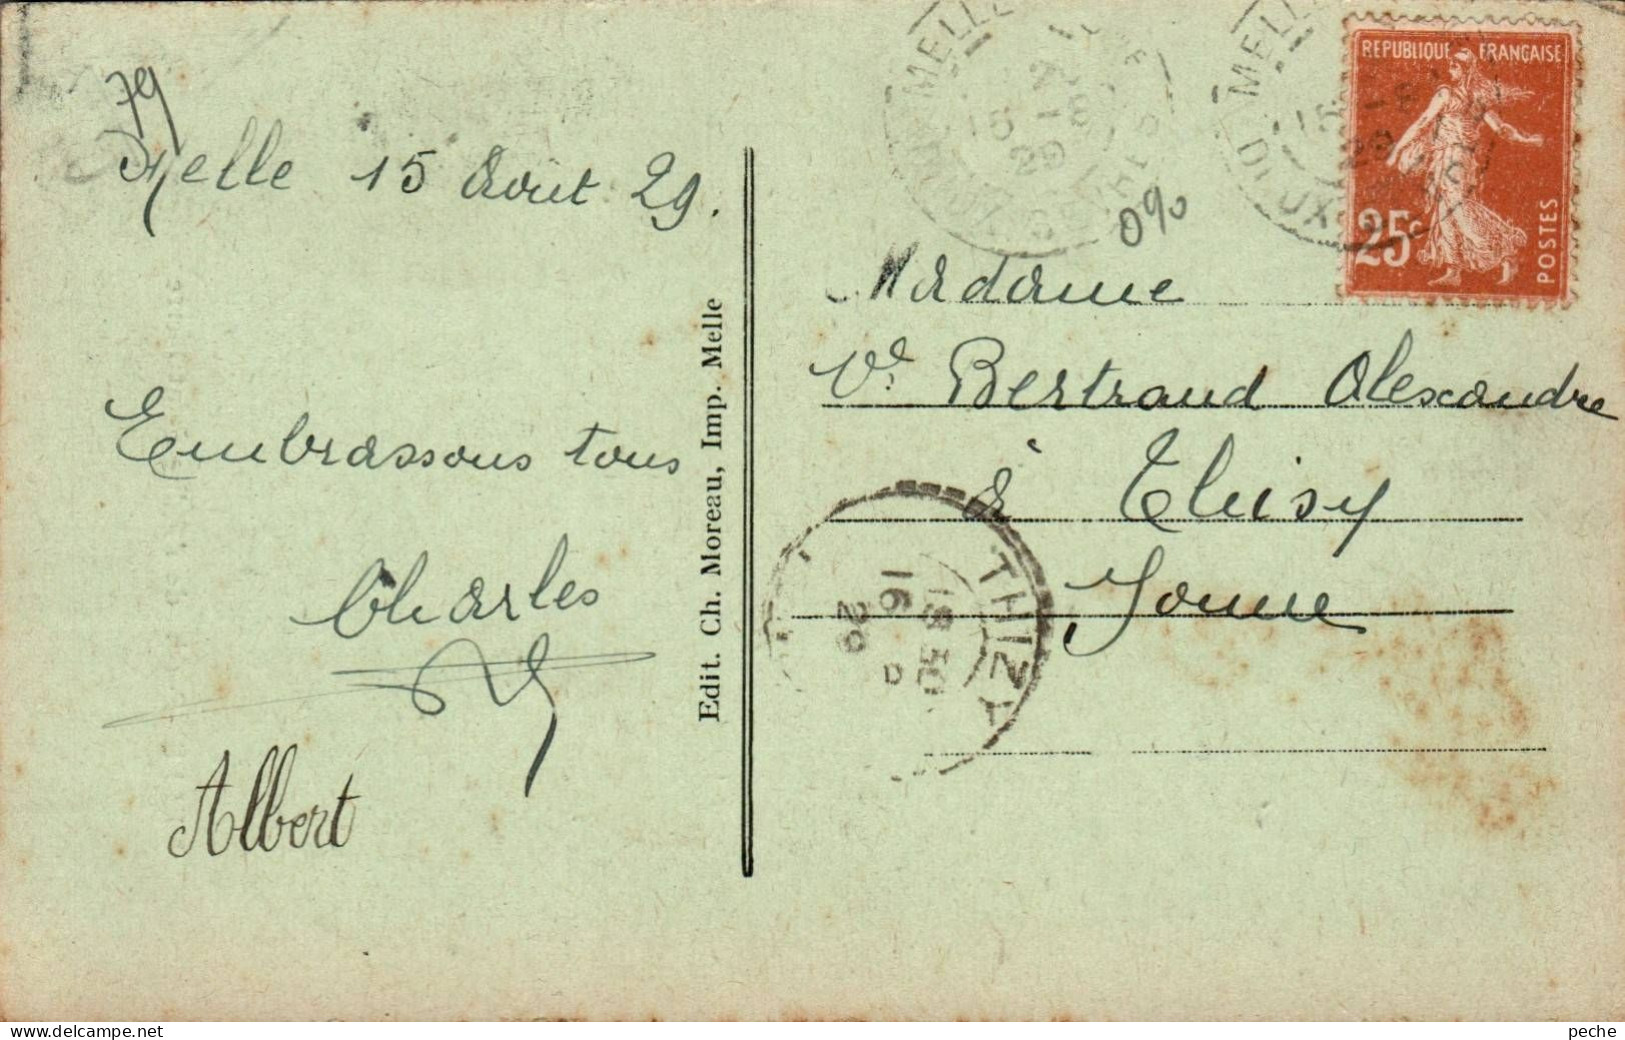 79
Melle 15 Août 29.
Embrassons tous
Charles
Albert
Edit. Ch. Moreau, Imp. Melle
MELLE
15 - 8
29
DEUX-SEVRES
MELLE
15 - 8
29
DEUX
REPUBLIQUE FRANÇAISE
25c
POSTES
Madame
Ve Bertrand Alexandre
à Thisy
Yonne
THIZY
18 30
16 - 8
29
delcampe.net
peche